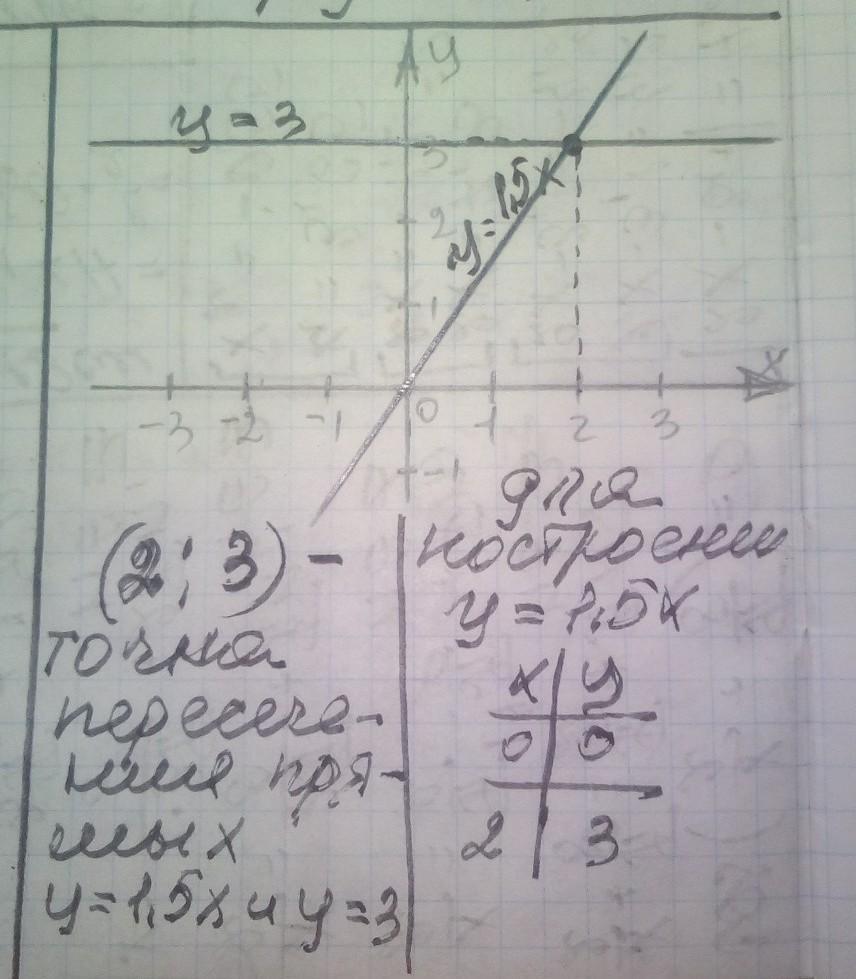 y
y = 3
3
y = 1,5x
2
1
x
-3 -2 -1 0 1 2 3
-1
(2; 3) -
точка
пересече-
ния пря-
мых
y = 1,5x и y = 3
для
построения
y = 1,5x
x y
0 0
2 3